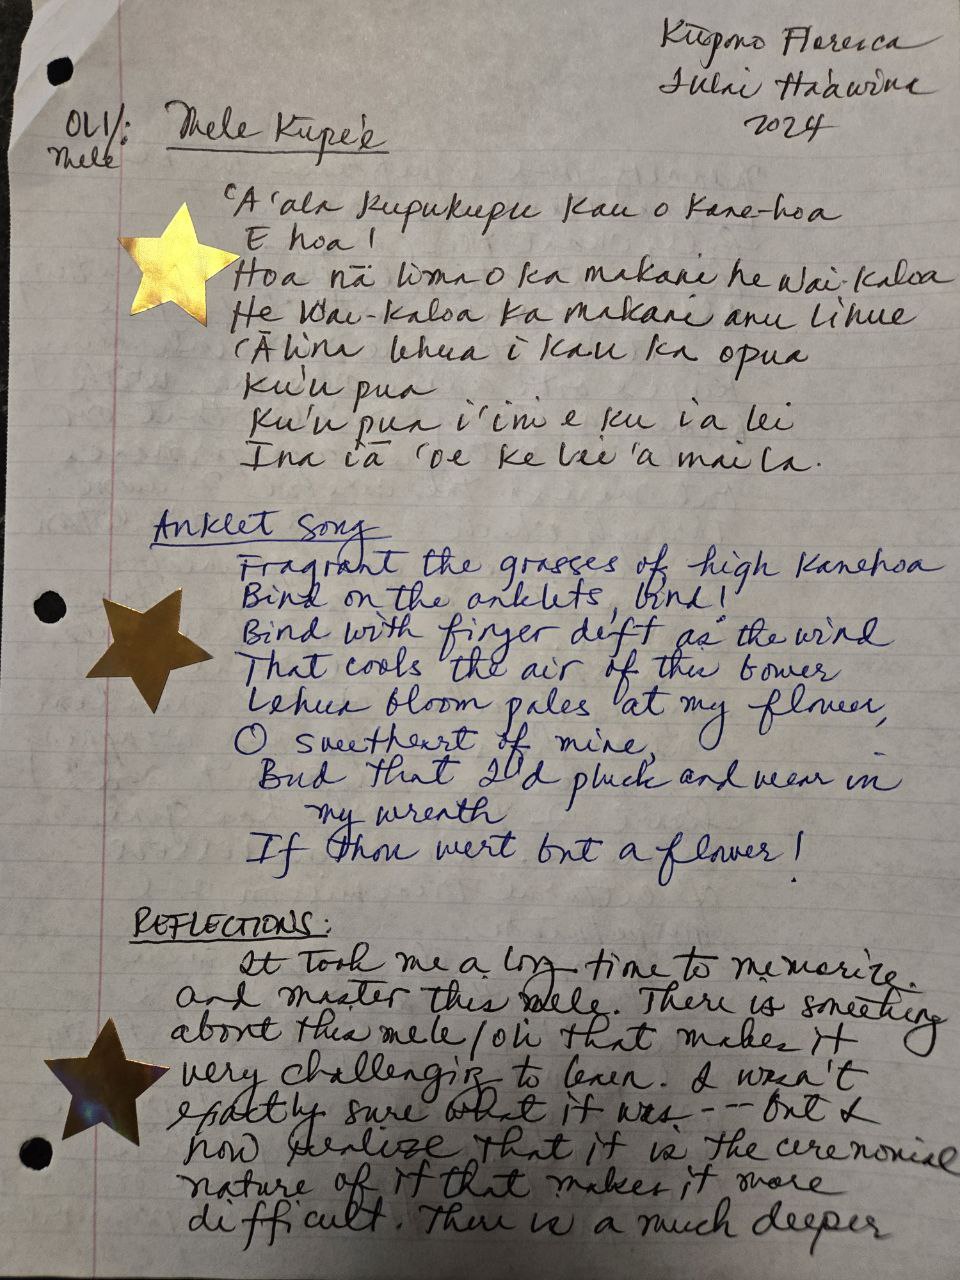 Kūpono Floresca
Iulai Ha'awina
2024
OLI/: Mele Kupe'e
Mele
'A 'ala Kupukupu Kau o Kane-hoa
E hoa!
Hoa nā lima o ka makani he Wai-Kaloa
He Wai-Kaloa Ka makani anu Lihue
'Ālina lehua i kau ka opua
Ku'u pua
Ku'u pua i 'ini e ku i a lei
Ina iā 'oe ke lei 'a mai la.
Anklet Song
Fragrant the grasses of high Kanehoa
Bind on the anklets, bind!
Bind with finger deft as the wind
That cools the air of this bower
Lehua bloom pales at my flower,
O sweetheart of mine,
Bud that I'd pluck and wear in
my wreath
If thou wert but a flower!
REFLECTIONS:
It took me a long time to memorize
and master this mele. There is something
about this mele/oli that makes it
very challenging to learn. I wasn't
exactly sure what it was --- but I
now realize that it is the ceremonial
nature of it that makes it more
difficult. There is a much deeper